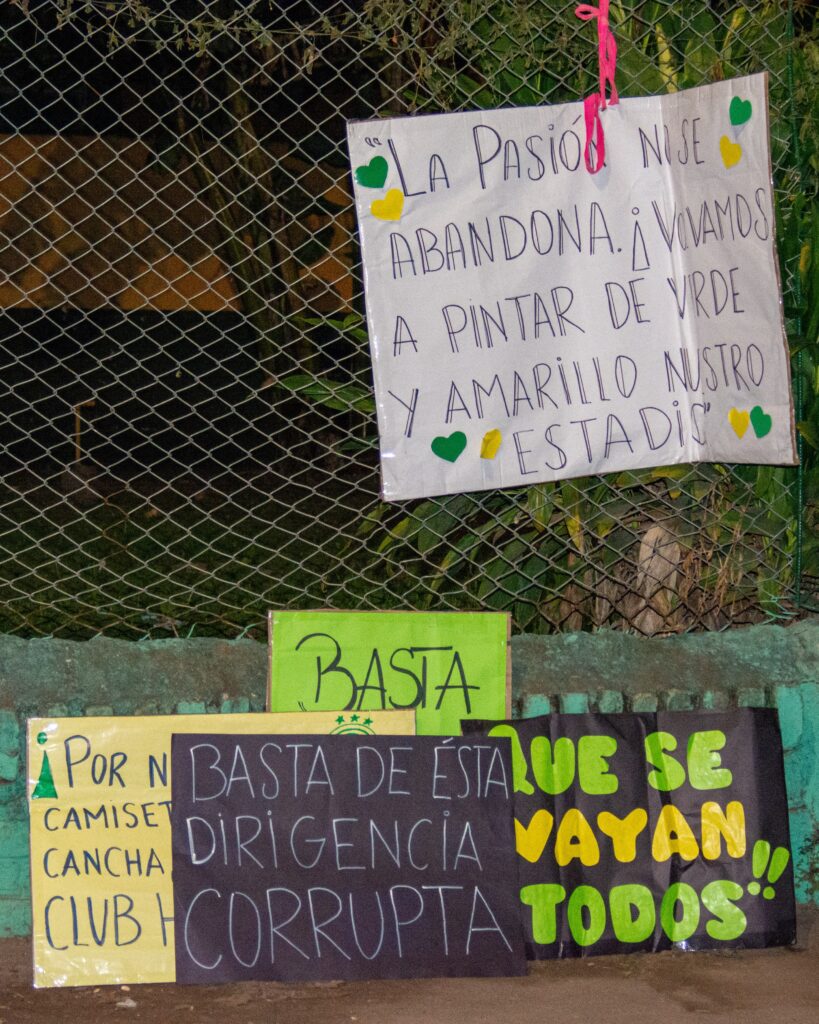 "LA PASIÓN NO SE
ABANDONA. ¡VOLVAMOS
A PINTAR DE VERDE
Y AMARILLO NUESTRO
ESTADIO"
"BASTA
¡POR N
CAMISET
CANCHA
CLUB H
BASTA DE ÉSTA
DIRIGENCIA
CORRUPTA
QUE SE
VAYAN
TODOS"!!